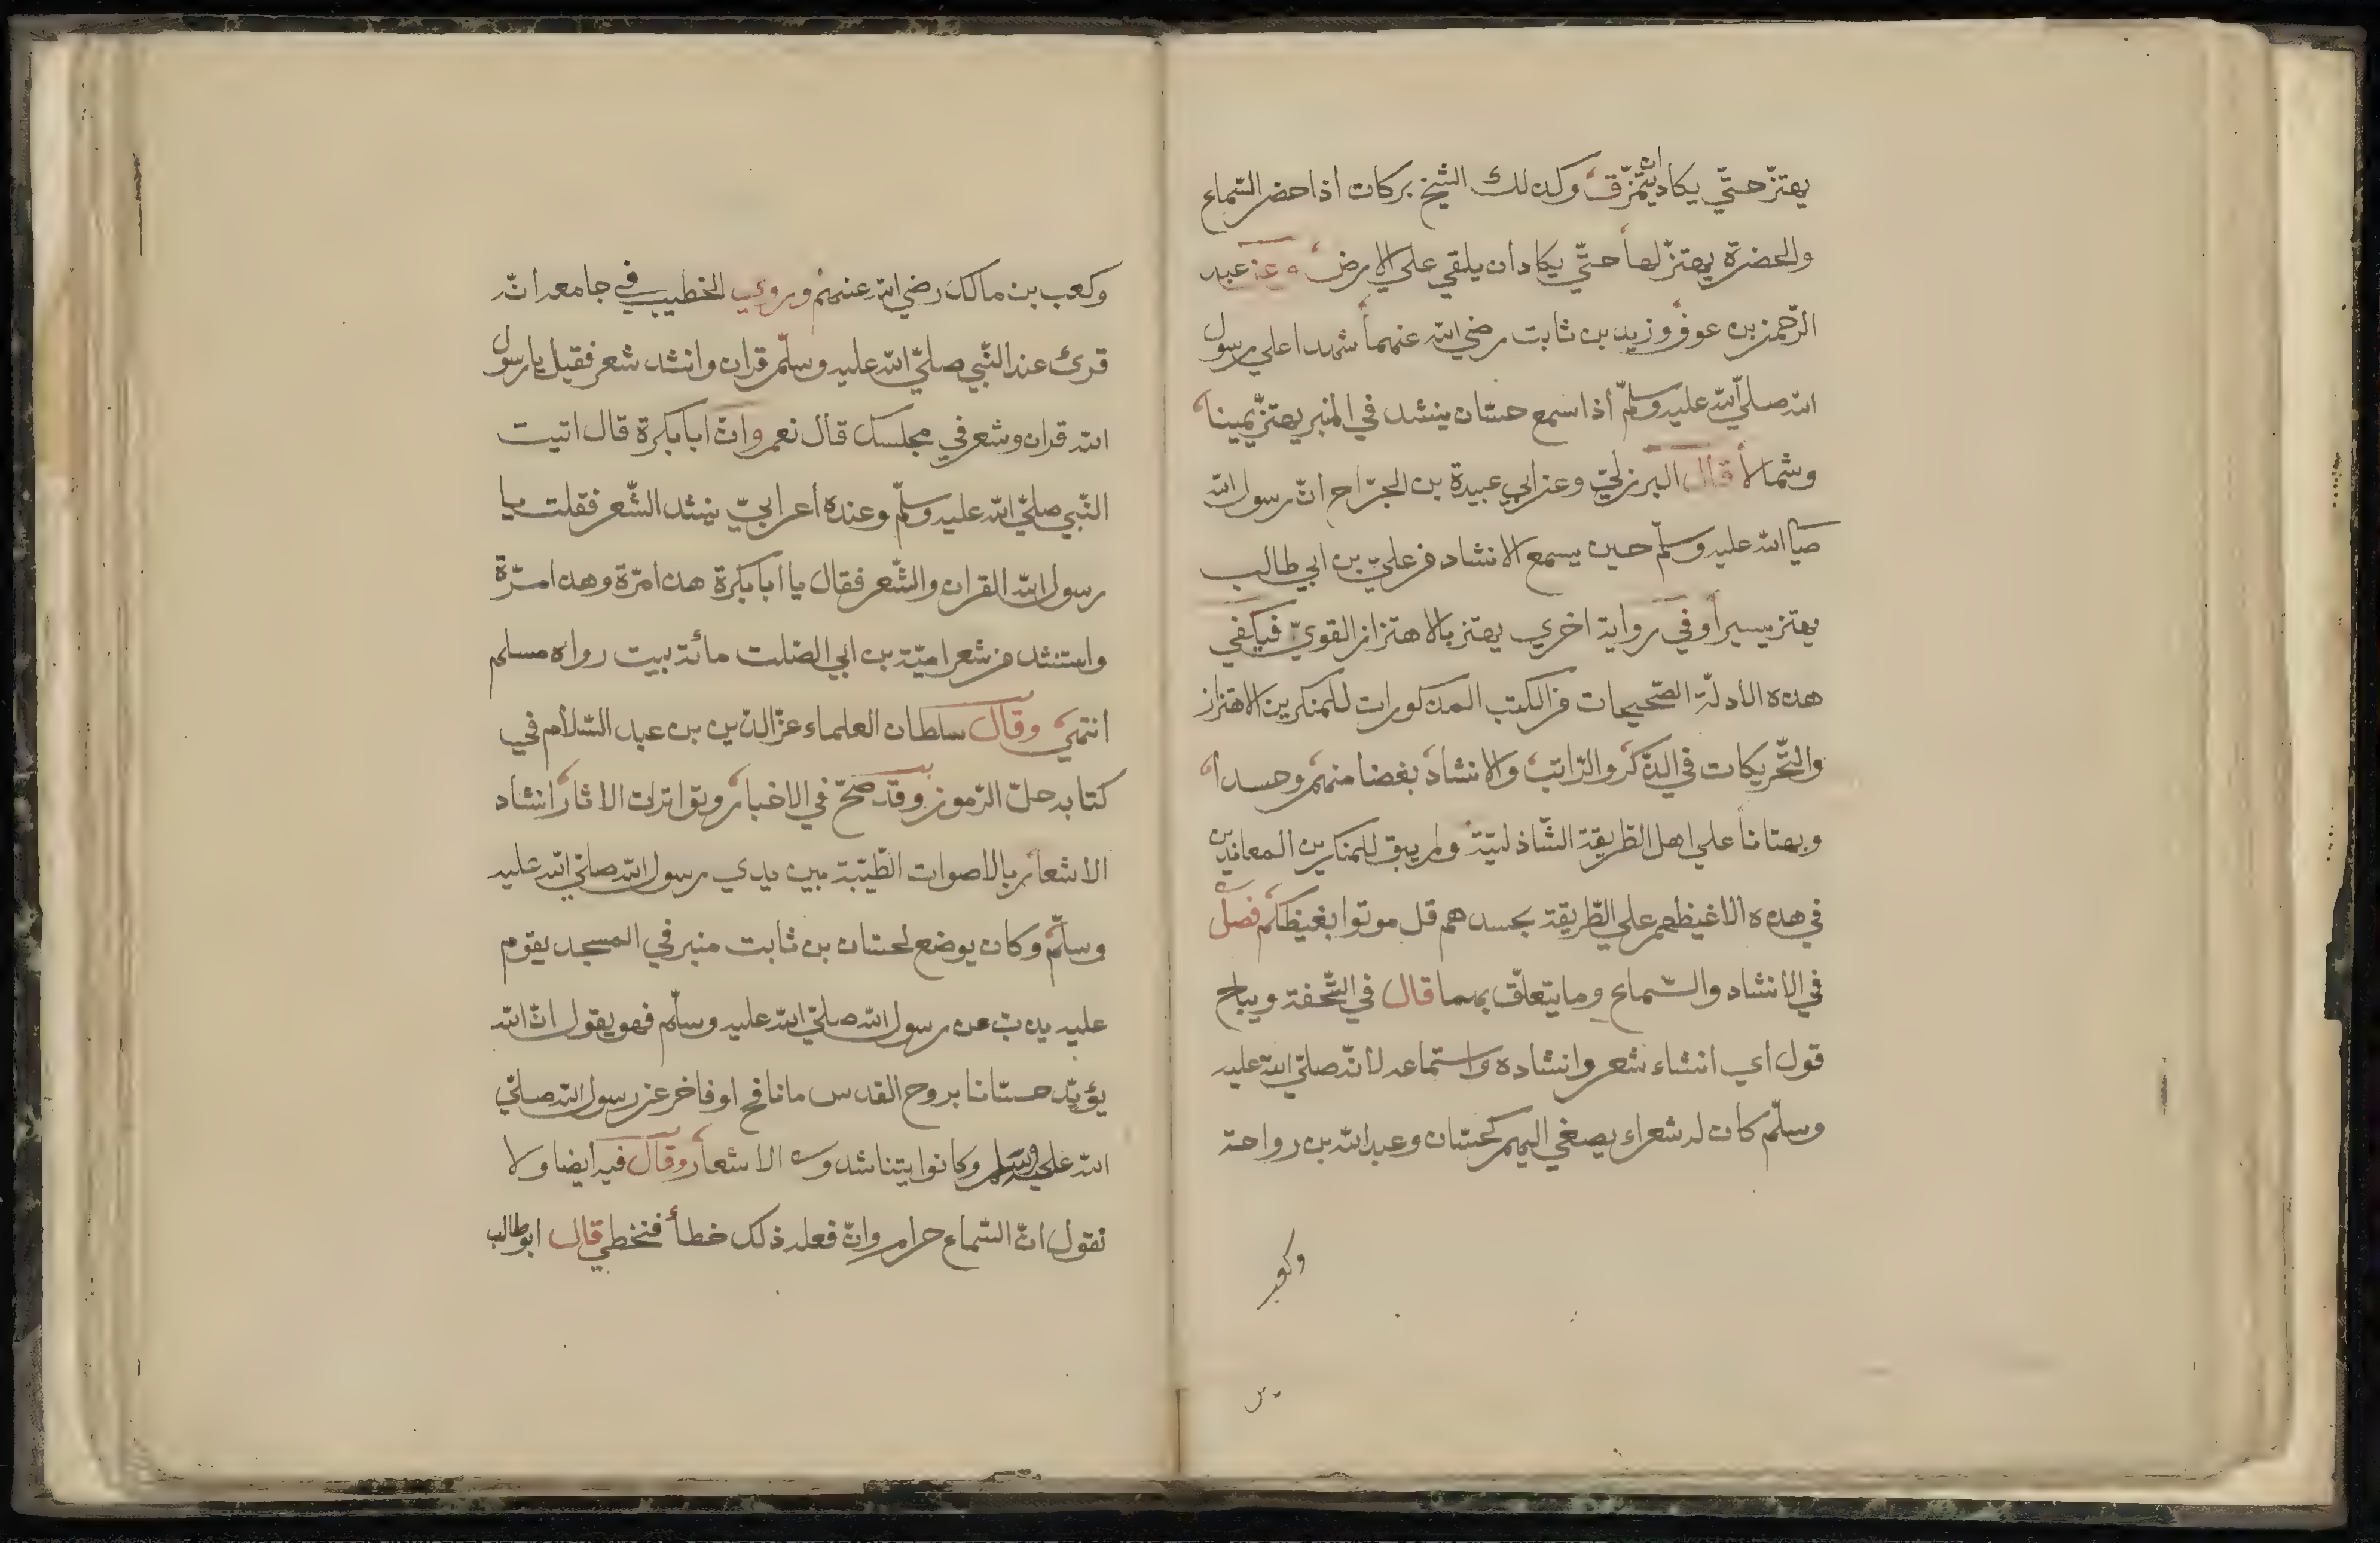 يهتزّ حتّي يكاد ان يتمزّق وكذلك الشيخ بركات اذا حضر السّماع
والحضرة يهتزّ لها حتّي يكاد ان يلقي علي الارض وعن عبد
الرّحمن بن عوف وزيد بن ثابت رضي الله عنهما شهدا علي رسول
الله صلّي الله عليه وسلّم اذا سمع حسّان ينشد في المنبر يهتزّ يمينا
وشمالا قال البرزليّ وعن ابي عبيدة بن الجرّاح انّ رسول الله
صلي الله عليه وسلّم حين يسمع الانشاد من عليّ بن ابي طالب
يهتز يسيرا وفي رواية اخري يهتز بالاهتزاز القويّ فيكفي
هذه الأدلّة الصّحيحات من الكتب المذكورات للمنكرين الاهتزاز
والتّحريكات في الذّكر والرّاتب والانشاد بغضا منهم وحسدا
وبهتانا علي اهل الطّريقة الشّاذليّة ولم يبق للمنكرين المعاندين
في هذه الا غيظهم علي الطّريقة بحسدهم قل موتوا بغيظكم فصل
في الانشاد والسّماع وما يتعلّق بهما قال في التّحفة ويباح
قول اي انشاء شعر وانشاده واستماعه لانّه صلّي الله عليه
وسلّم كان له شعراء يصغي اليهم كحسّان وعبد الله بن رواحة
وكعب
وكعب بن مالك رضي الله عنهم وروي الخطيب في جامعه انّه
قرئ عند النّبي صلّي الله عليه وسلّم قران وانشد شعر فقيل يا رسول
الله قران وشعر في مجلسك قال نعم وانّ ابا بكرة قال اتيت
النّبي صلّي الله عليه وسلّم وعنده أعرابيّ ينشد الشّعر فقلت يا
رسول الله القران والشّعر فقال يا ابا بكرة هذا مرّة وهذا مرّة
واستنشد من شعر اميّة بن ابي الصّلت مائة بيت رواه مسلم
انتهي وقال سلطان العلماء عزّ الدّين بن عبد السّلام في
كتابه حلّ الرّموز وقد صحّ في الاخبار وتواترت الاثار انشاد
الاشعار بالاصوات الطّيّبة بين يدي رسول الله صلّي الله عليه
وسلّم وكان يوضع لحسّان بن ثابت منبر في المسجد يقوم
عليه يذبّ عن رسول الله صلّي الله عليه وسلّم فهو يقول انّ الله
يؤيّد حسّانا بروح القدس ما نافح او فاخر عن رسول الله صلّي
الله عليه وسلم وكانوا يتناشدون الاشعار وقال فيه ايضا ولا
نقول انّ السّماع حرام وانّ فعله ذلك خطأ فنخطي قال ابو طالب